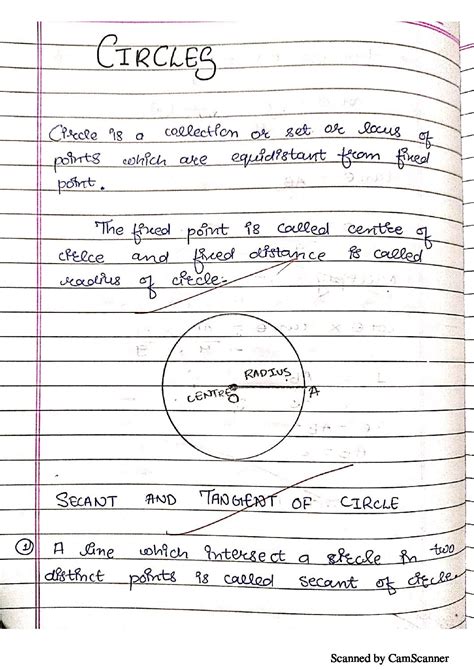 CIRCLES
Circle is a collection or set or locus of
points which are equidistant from fixed
point.
The fixed point is called centre of
circle and fixed distance is called
radius of circle.
RADIUS
CENTRE O A
SECANT AND TANGENT OF CIRCLE
① A line which intersect a circle in two
distinct points is called secant of circle.
Scanned by CamScanner